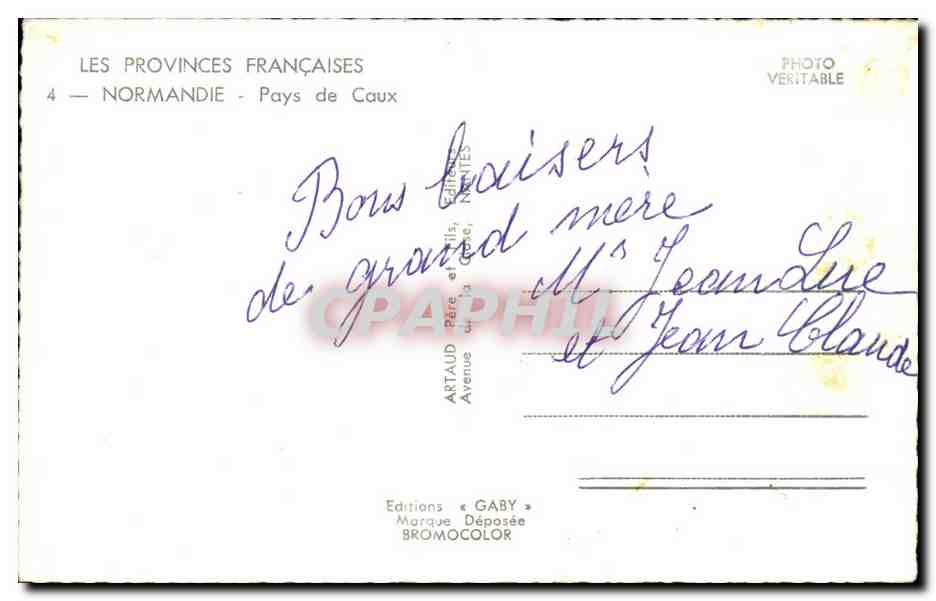 LES PROVINCES FRANÇAISES
4 — NORMANDIE - Pays de Caux
PHOTO
VERITABLE
Bons baisers
de grand mère
Mrs Jean Luc
et Jean Claude
ARTAUD Père et Fils, Editeurs
Avenue de la Close, NANTES
CPAPHIL
Editions « GABY »
Marque Déposée
BROMOCOLOR